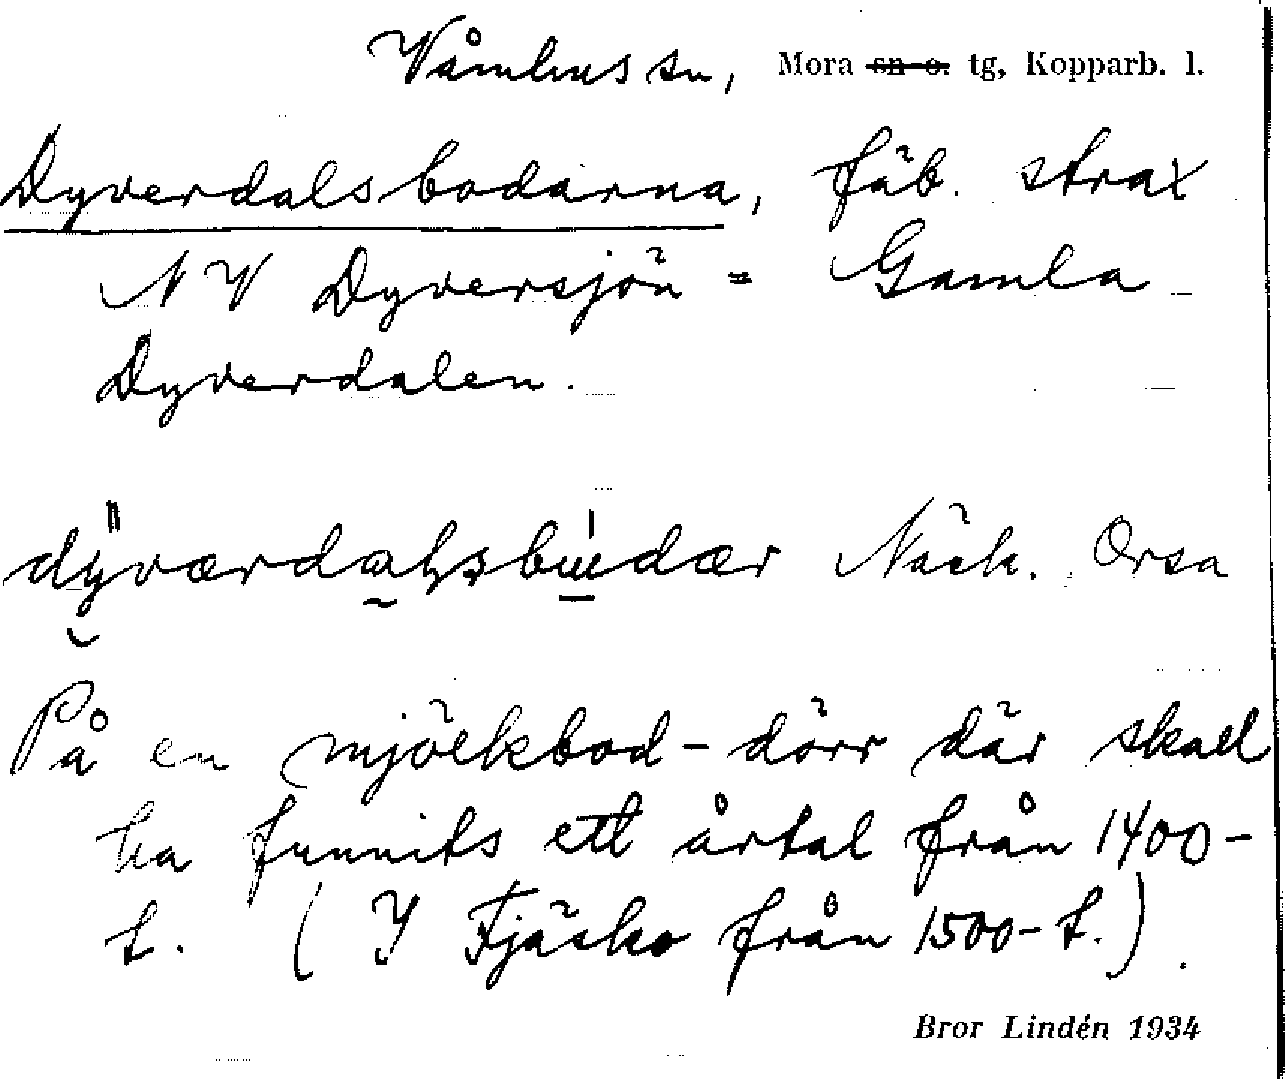 Våmhus sn, Mora sn o. tg, Kopparb. l.
Dyverdalsbodarna, fäb. strax
NV Dyversjön = Gamla
Dyverdalen.
dÿværdaḷsbɯdær Näck. Orsa
På en mjölkbod-dörr där skall
ha funnits ett årtal från 1400-
t. (I Fjäcko från 1500-t.).
Bror Lindén 1934